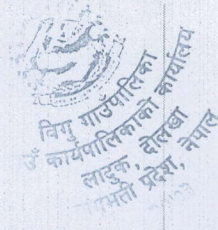 विगु गाउँपालिका
गाउँ कार्यपालिकाको कार्यालय
लादुक, दोलखा
प्रदेश, नेपाल